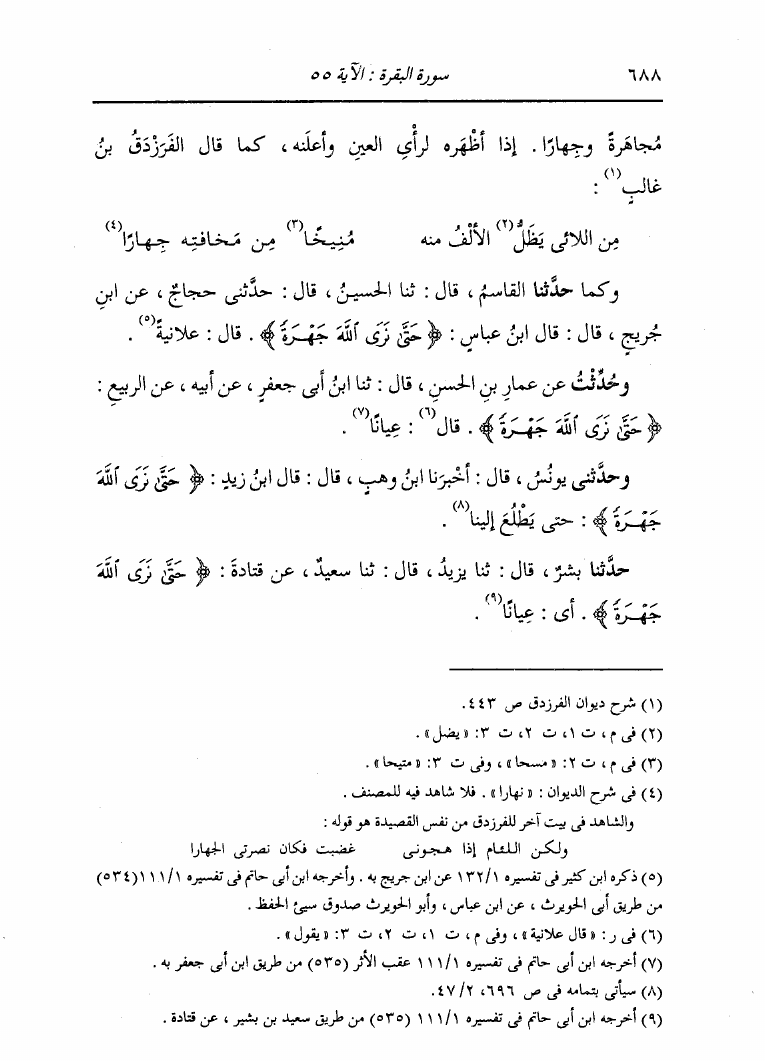 ٦٨٨ سورة البقرة : الآية ٥٥
مُجاهَرةً وجِهارًا . إذا أظْهَره لرأْيِ العينِ وأعلَنه ، كما قال الفَرَزْدَقُ بنُ
غالبٍ(١) :
مِن اللائى يَظَلُّ(٢) الألْفُ منه مُنِيخًا(٣) مِن مَخافتِه جِهارًا(٤)
وكما حدَّثنا القاسمُ ، قال : ثنا الحسينُ ، قال : حدَّثنى حجاجٌ ، عن ابنِ
جُريجٍ ، قال : قال ابنُ عباسٍ : ﴿ حَتَّىٰ نَرَى ٱللَّهَ جَهْرَةً ﴾ . قال : علانيةً(٥) .
وحُدِّثْتُ عن عمارِ بنِ الحسنِ ، قال : ثنا ابنُ أبى جعفرٍ ، عن أبيه ، عن الربيعِ :
﴿ حَتَّىٰ نَرَى ٱللَّهَ جَهْرَةً ﴾ . قال(٦) : عِيانًا(٧) .
وحدَّثنى يونُسُ ، قال : أخْبرَنا ابنُ وهبٍ ، قال : قال ابنُ زيدٍ : ﴿ حَتَّىٰ نَرَى ٱللَّهَ
جَهْرَةً ﴾ : حتى يَطْلُعَ إلينا(٨) .
حدَّثنا بشرٌ ، قال : ثنا يزيدُ ، قال : ثنا سعيدٌ ، عن قتادةَ : ﴿ حَتَّىٰ نَرَى ٱللَّهَ
جَهْرَةً ﴾ . أى : عِيانًا(٩) .
(١) شرح ديوان الفرزدق ص ٤٤٣.
(٢) فى م ، ت ١، ت ٢، ت ٣: « يضل » .
(٣) فى م ، ت ٢: « مسحا » ، وفى ت ٣: « متيحا » .
(٤) فى شرح الديوان : « نهارا » . فلا شاهد فيه للمصنف .
والشاهد فى بيت آخر للفرزدق من نفس القصيدة هو قوله :
ولكن اللئام إذا هجونى غضبت فكان نصرتى الجهارا
(٥) ذكره ابن كثير فى تفسيره ١٣٢/١ عن ابن جريج به . وأخرجه ابن أبى حاتم فى تفسيره ١١١/١ (٥٣٤)
من طريق أبى الحويرث ، عن ابن عباس ، وأبو الحويرث صدوق سيئ الحفظ .
(٦) فى ر : « قال علانية » ، وفى م ، ت ١، ت ٢، ت ٣: « يقول » .
(٧) أخرجه ابن أبى حاتم فى تفسيره ١١١/١ عقب الأثر (٥٣٥) من طريق ابن أبى جعفر به .
(٨) سيأتى بتمامه فى ص ٦٩٦، ٤٧/٢.
(٩) أخرجه ابن أبى حاتم فى تفسيره ١١١/١ (٥٣٥) من طريق سعيد بن بشير ، عن قتادة .